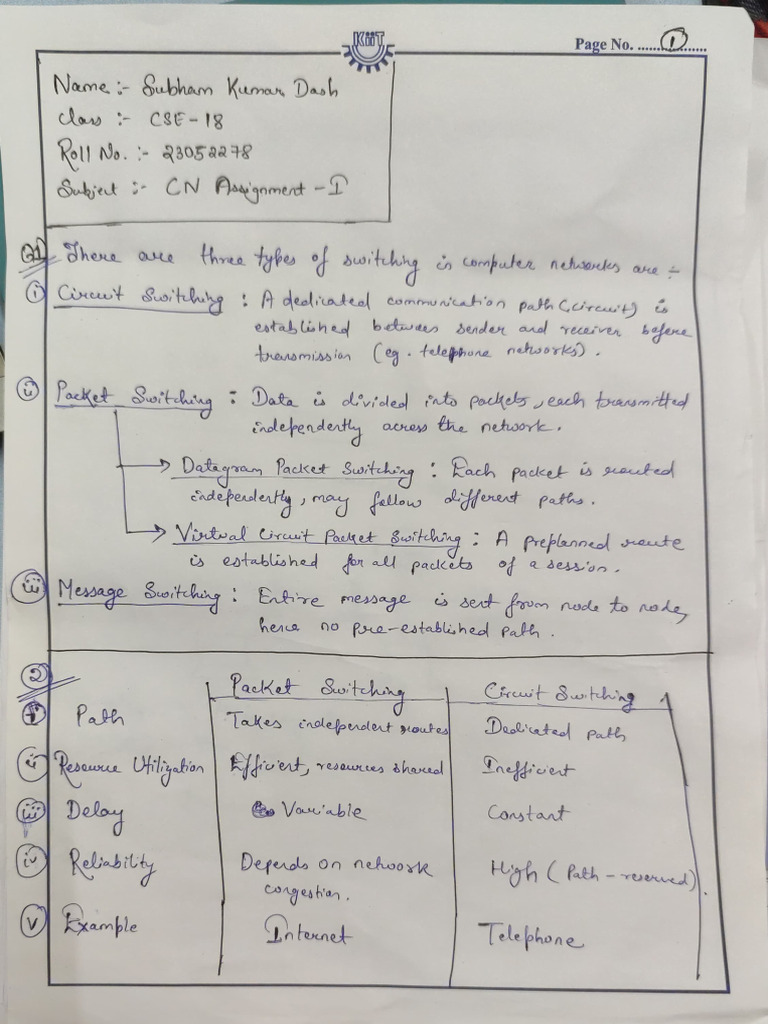 KIIT
Page No. ......1......
Name :- Subham Kumar Dash
Class :- CSE-18
Roll No. :- 23052278
Subject :- CN Assignment - I
Q1 There are three types of switching in computer networks are :-
i Circuit Switching : A dedicated communication path (circuit) is
established between sender and receiver before
transmission (eg. telephone networks).
ii Packet Switching : Data is divided into packets, each transmitted
independently across the network.
→ Datagram Packet Switching : Each packet is routed
independently, may follow different paths.
→ Virtual Circuit Packet Switching : A preplanned route
is established for all packets of a session.
iii Message Switching : Entire message is sent from node to node,
hence no pre-established path.
2
Packet Switching Circuit Switching
i Path Takes independent routes Dedicated path
ii Resource Utilization Efficient, resources shared Inefficient
iii Delay Variable Constant
iv Reliability Depends on network High (Path-reserved).
congestion.
v Example Internet Telephone